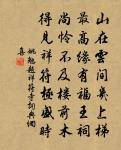 山在雲間上梯
最高緣有福王祠
尚怜不及楼前木
得見祥符極盛時
姚勉題祥符寺詞典網
喜